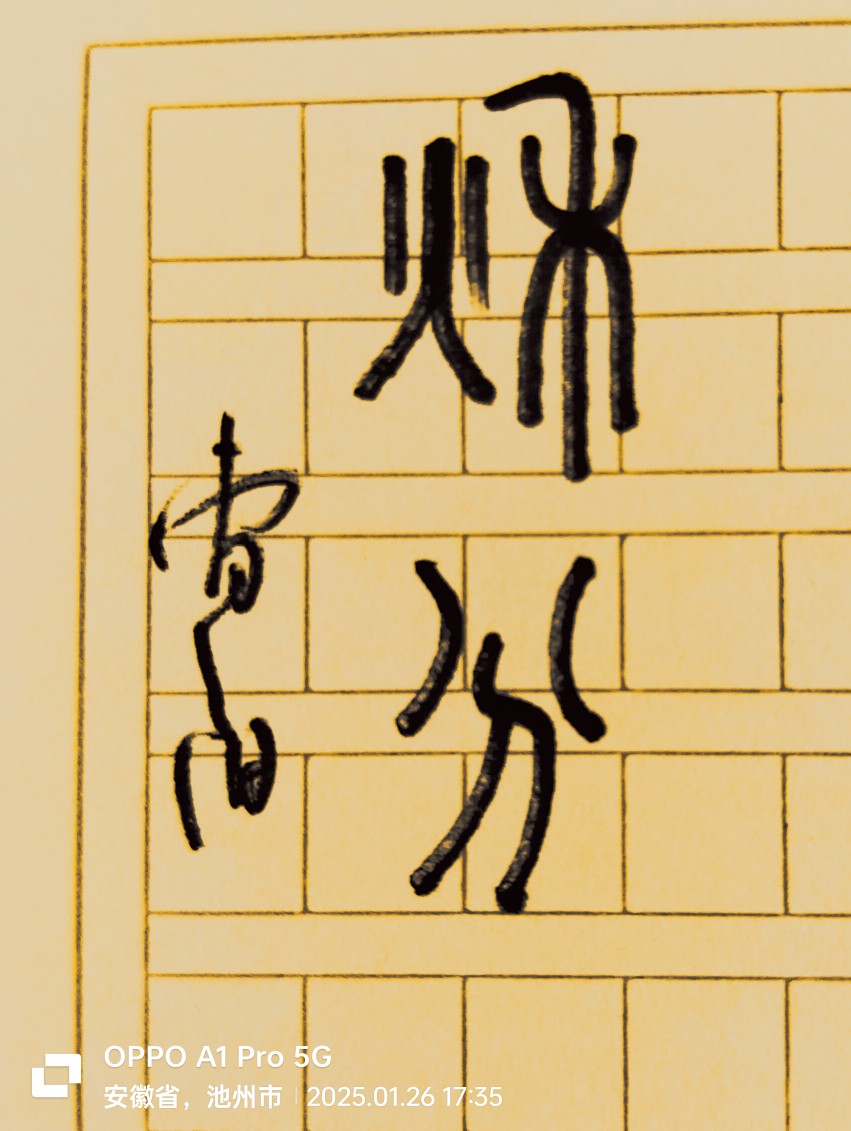 秋分
OPPO A1 Pro 5G
安徽省，池州市 | 2025.01.26 17:35